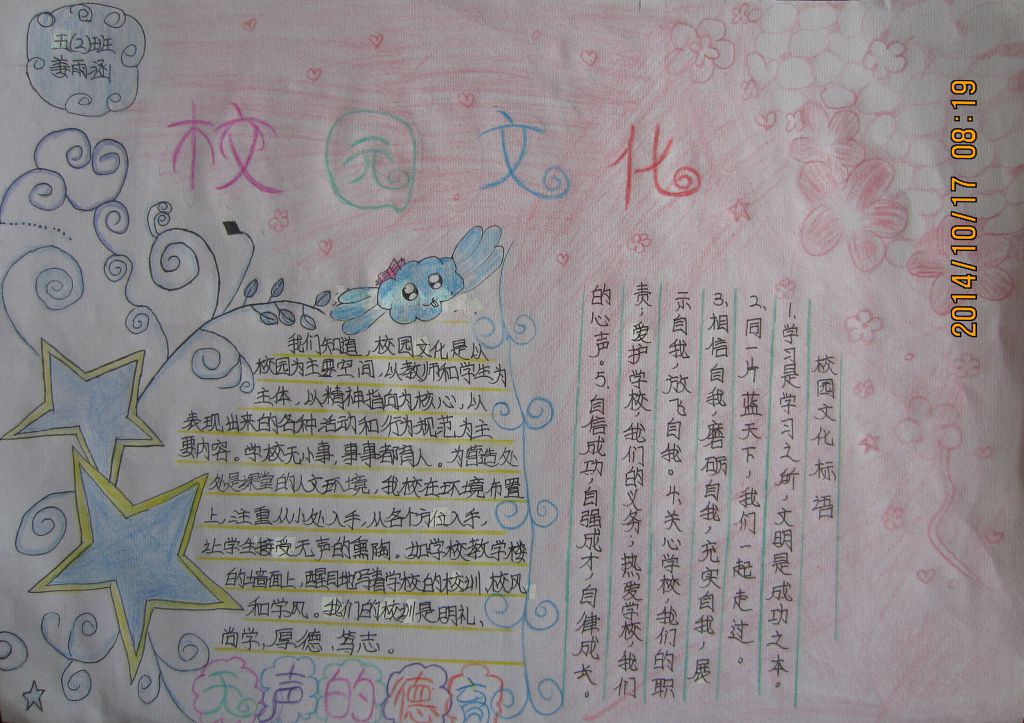 五(2)班
姜雨涵
校园文化
2014/10/17 08:19
我们知道，校园文化是以
校园为主要空间，以教师和学生为
主体，以精神指向为核心，以
表现出来的各种活动和行为规范为主
要内容。学校无小事，事事都育人。为营造处
处是课堂的人文环境，我校在环境布置
上，注重从小处入手，从各个方位入手，
让学生接受无声的熏陶。如学校教学楼
的墙面上，醒目地写着学校的校训、校风
和学风。我们的校训是明礼、
尚学，厚德，笃志。
无声的德育
校园文化标语
1.学习是学习之所，文明是成功之本。
2.同一片蓝天下，我们一起走过。
3.相信自我，磨砺自我，充实自我，展
示自我，放飞自我。4.关心学校，我们的职
责；爱护学校，我们的义务；热爱学校，我们
的心声。5.自信成功，自强成才，自律成长。